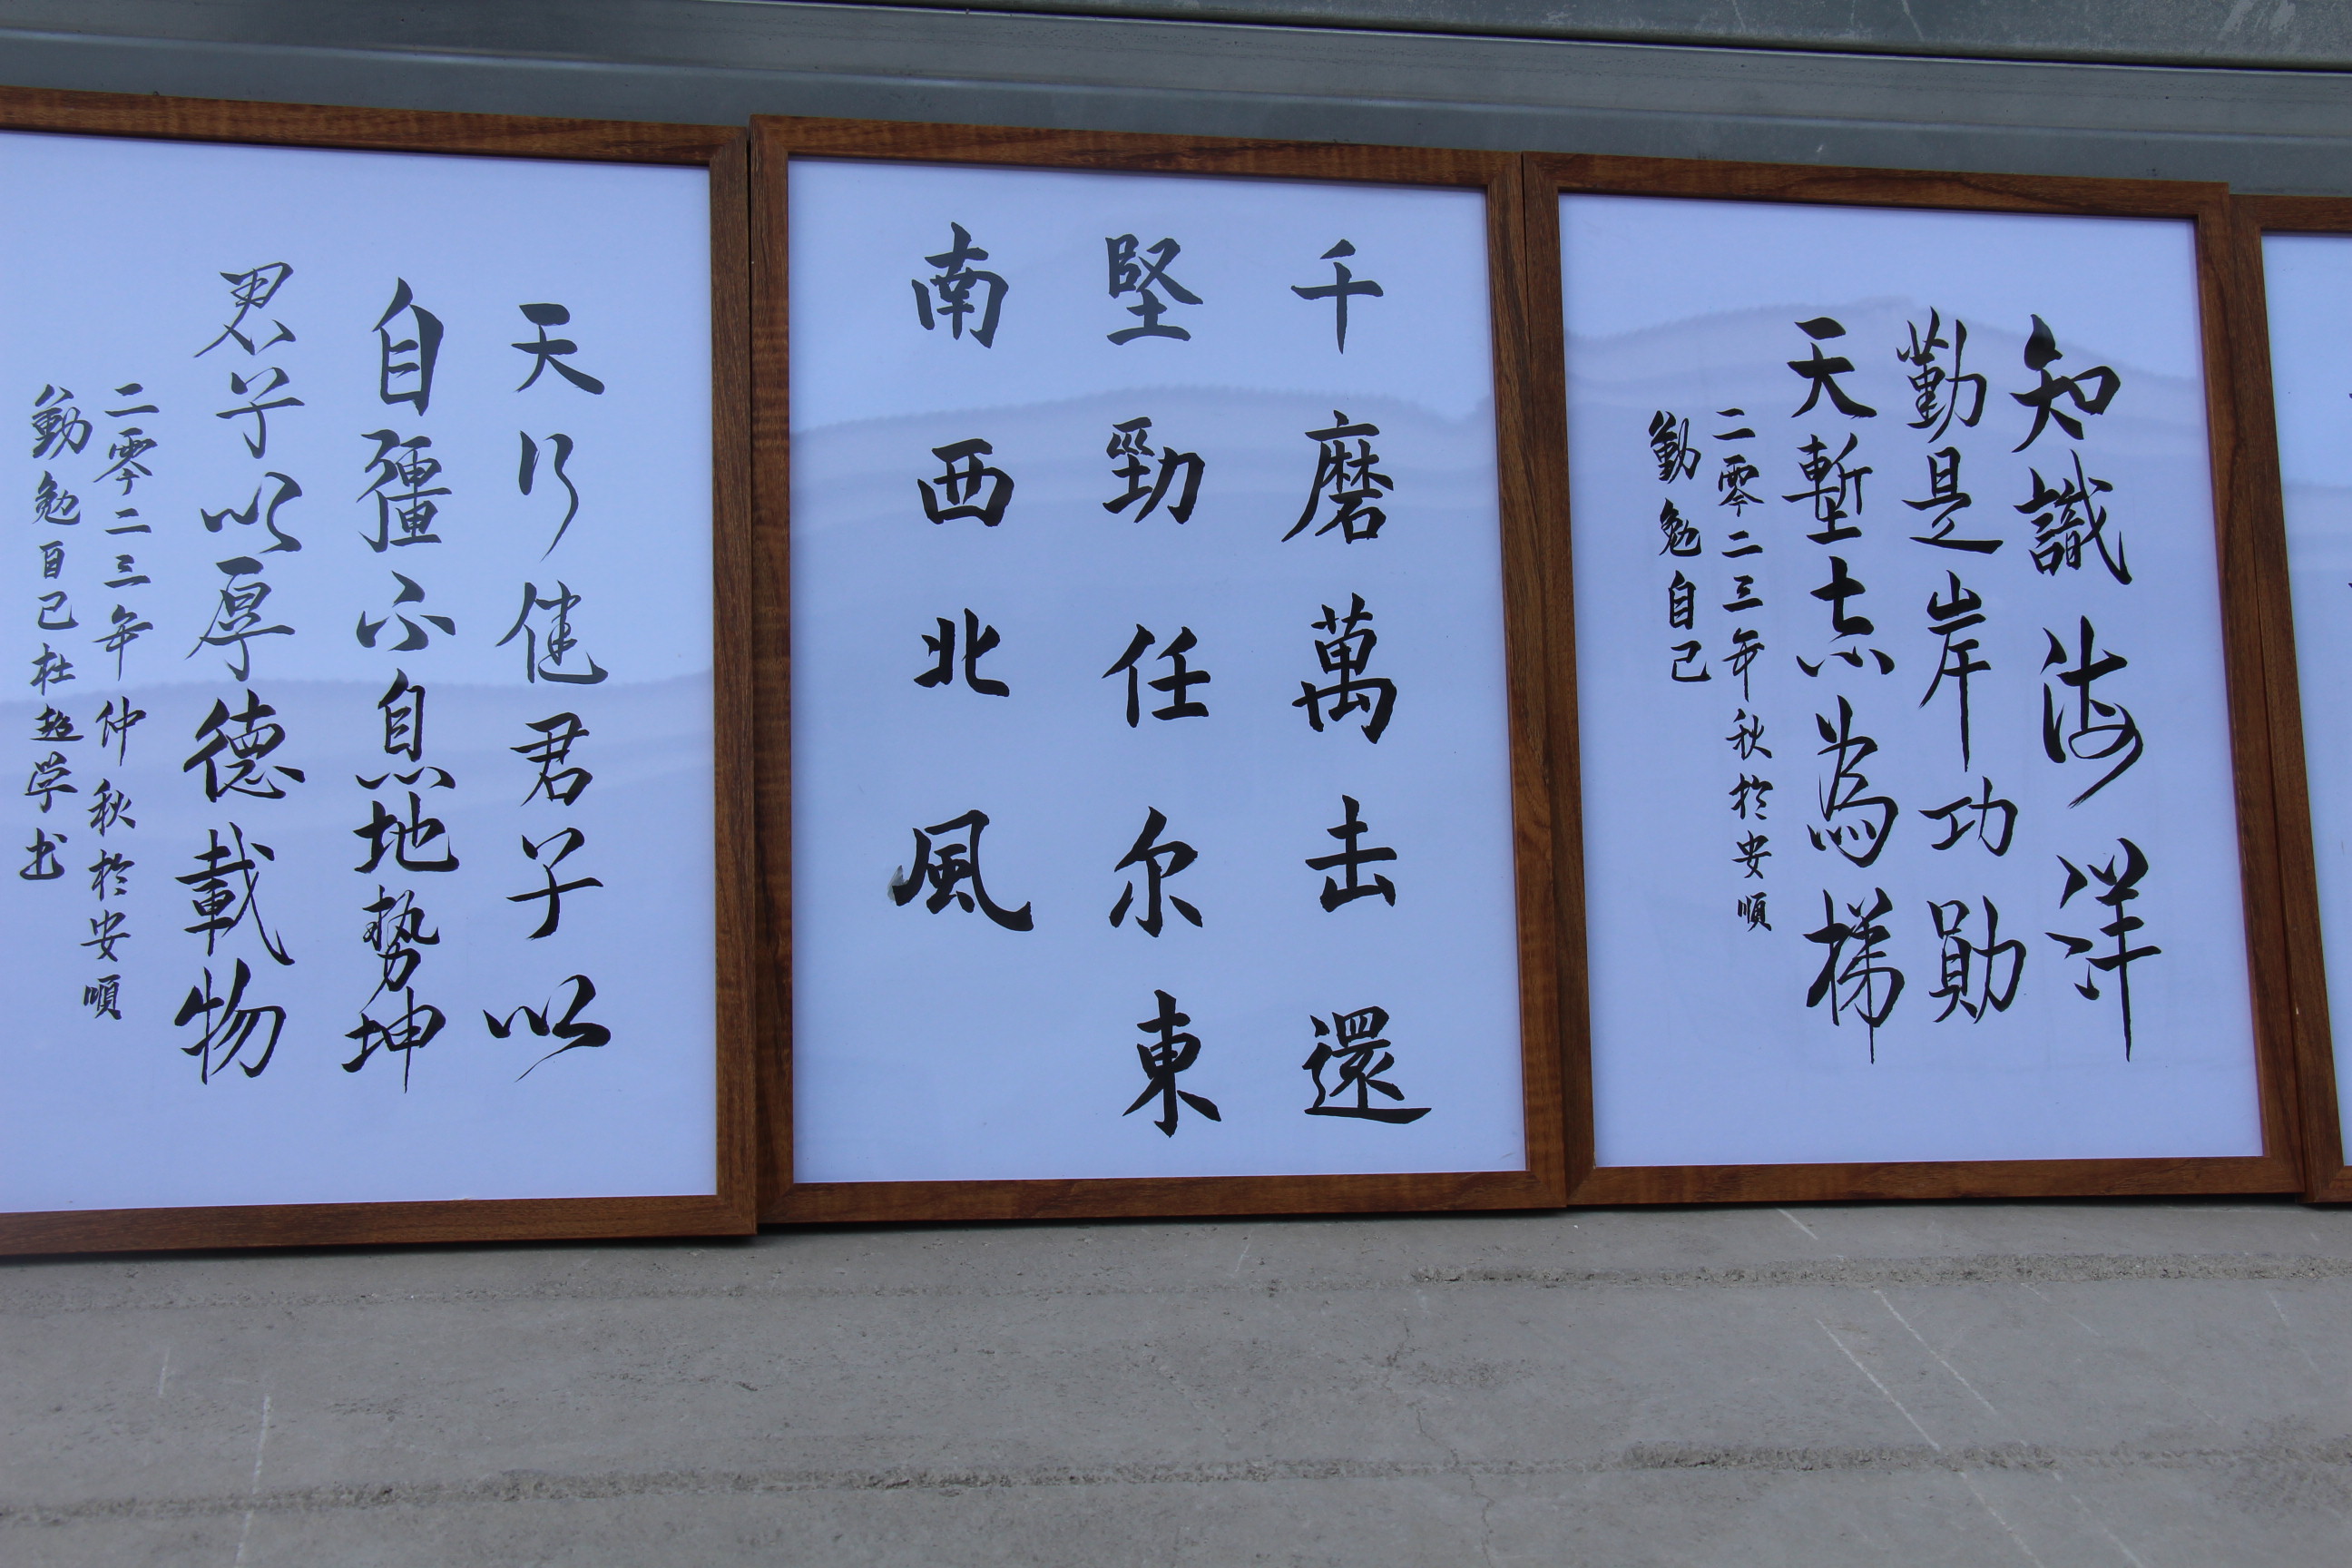 知識海洋
勤是岸功勛
天塹志為梯
二零二三年秋於安順
勤勉自己
千磨萬击還
堅勁任尔東
南西北風
天行健君子以
自彊不息地勢坤
君子以厚德載物
二零二三年仲秋於安順
勤勉自己杜超学书